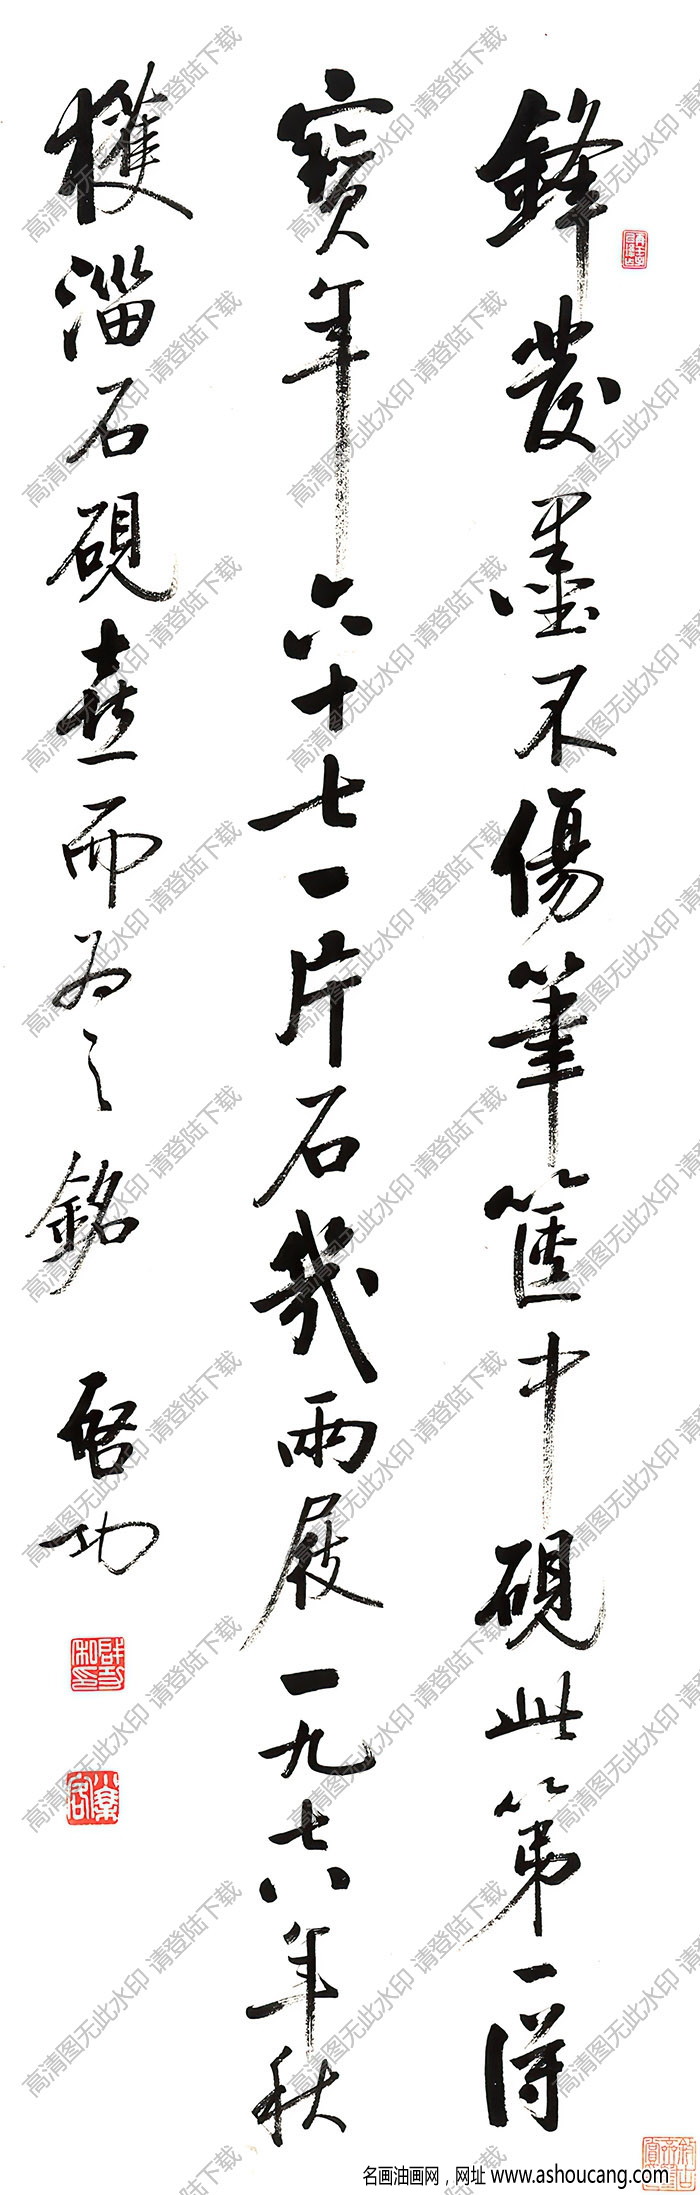 鋒發墨不傷筆篋中硯此第一得
寶年六十七一片石幾兩屐一九七八年秋
獲淄石硯喜而為之銘
啓功
高清图无此水印 请登陆下载
名画油画网，网址 www.ashoucang.com